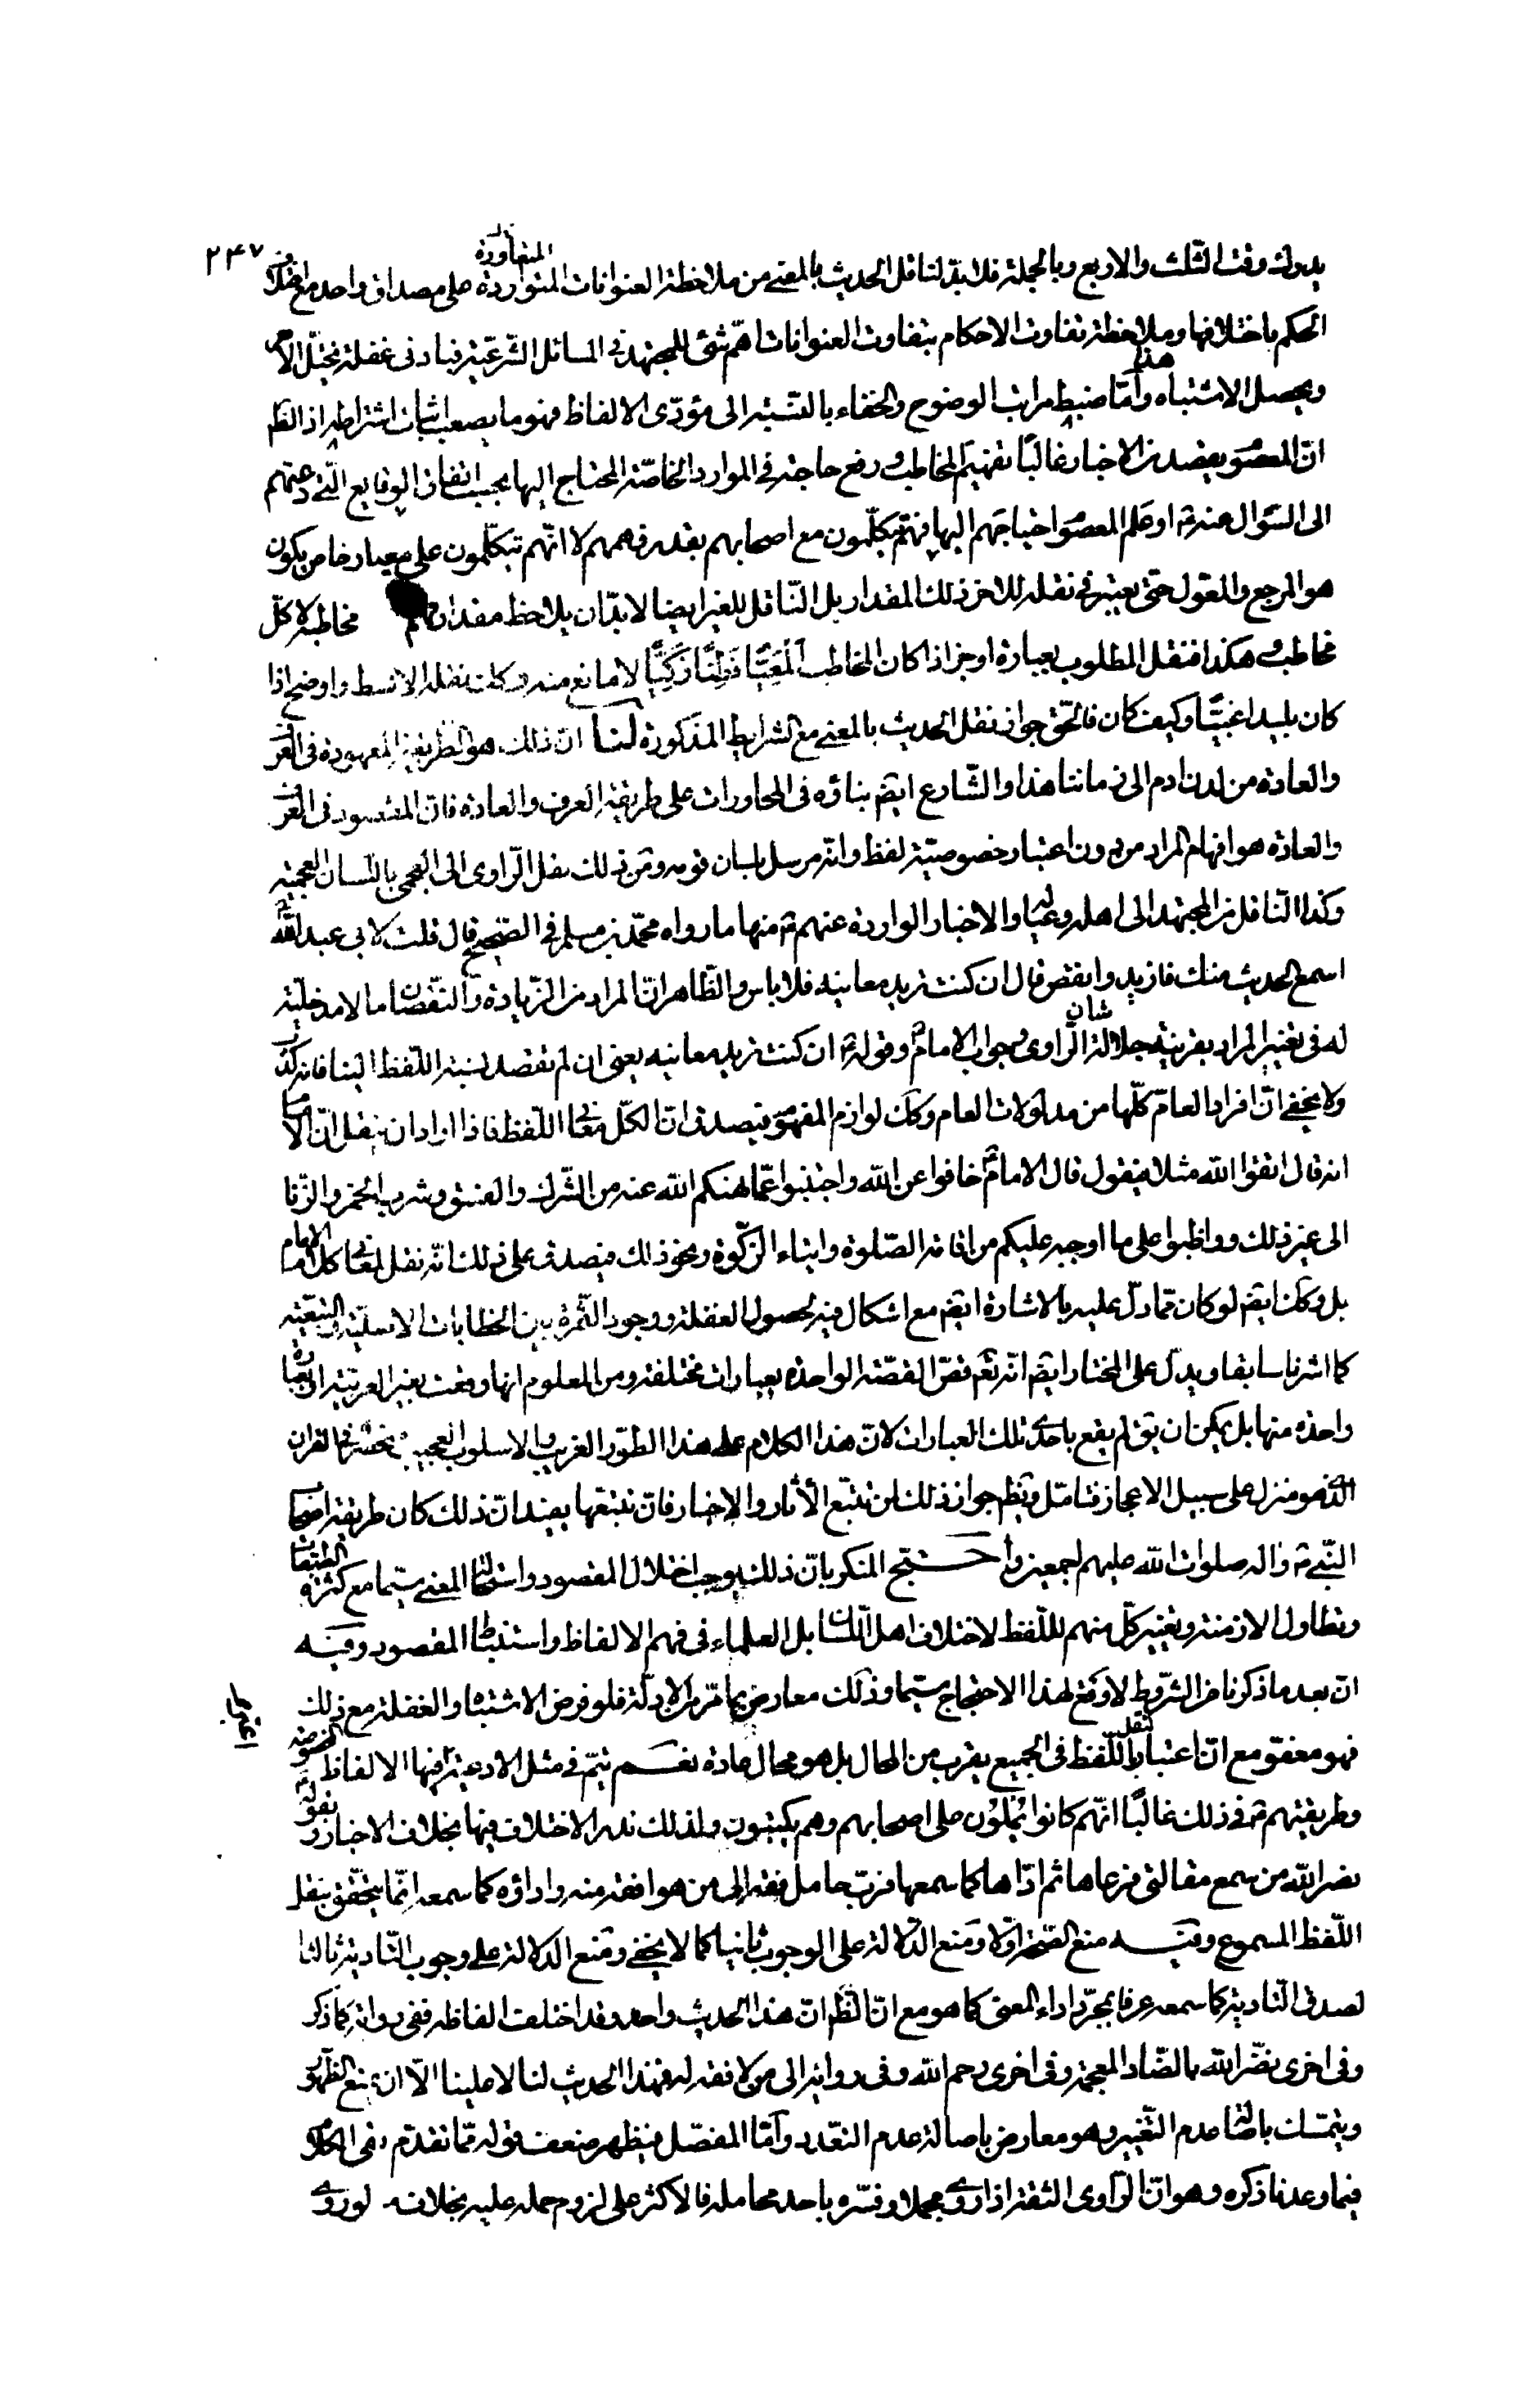 ٢٤٧
يدرك وقت الثلث والاربع وبالجملة فلا بد لناقل الحديث بالمعنى من ملاحظة العنوانات المتواردة المتفاوتة على مصداق واحد مع اختلاف
الحكم باختلافها وملاحظة تفاوت الاحكام بتفاوت العنوانات اهمّ شئ للمجتهد فى المسائل الشّرعيّة فبادنى غفلة يختلّ الامر
ويحصل الاشتباه هذا وأمّا ضبط مراتب الوضوح والخفاء بالنّسبة الى مؤدّى الالفاظ فهو ما يصعب اثبات اشتراطه اذ الظم
انّ المعصوم يقصد فى الاخبار غالبًا تفهيم المخاطب ورفع حاجته فى الموارد الخاصّة المحتاج اليها بحسب اتفاق الوقايع الّتى دعتهم
الى السّؤال عنه او علم المعصوم احتياجهم اليها فهم يتكلّمون مع اصحابهم بقدر فهمهم لا انّهم يتكلّمون على معيار خاص يكون
هو المرجع والمعول حتّى يعتبر فى نقله للاخر ذلك المقدار بل النّاقل للغير ايضا لا بدّ ان يلاحظ مقدار فهم مخاطبه لا كلّ
مخاطب وهكذا فنقل المطلوب بعبارة اوجز اذا كان المخاطب ألمَعِيًّا فَطِنًا زَكِيًّا لا مانع منه وكك نقله الابسط واوضح اذا
كان بليدا غبيًّا وكيف كان فالحّق جواز نقل الحديث بالمعنى مع الشرايط المذكورة لنا انّ ذلك هو الطريقة المعهودة فى العرف
والعادة من لدن ادم الى زماننا هذا والشّارع ايضم بناؤه فى المحاورات على طريقة العرف والعادة فانّ المقصود فى العرف
والعادة هو افهام المراد من دون اعتبار خصوصيّة لفظ وانّه مرسل بلسان قومه ومن ذلك نقل الرّاوى الى العجمى باللّسان العجميّة
وكذا النّاقل من المجتهد الى اهله وعياله والاخبار الواردة عنهم ع منها ما رواه محمّد بن مسلم فى الصّحيح قال قلت لابى عبد الله ع
اسمع الحديث منك فازيد وانقص قال ان كنت تريد معانيه فلا باس والظّاهر انّ المراد من الزّيادة والنّقصان ما لا مدخليّة
له فى تغيير المراد بقرينة جلالة شان الرّاوى وجواب الامام ع وقوله ع ان كنت تريد معانيه يعنى ان لم تقصد نسبة اللّفظ الينا فانه كذب
ولا يخفى انّ افراد العامّ كلّها من مدلولات العام وكك لوازم المفهوم فيصدق انّ الكلّ معانى اللّفظ فاذا اراد ان ينقل انّ الامام
انه قال اتقوا الله مثلا فيقول قال الامام ع خافوا عن الله واجتنبوا عمّا نهيكم الله عنه من الشّرك والفسق وشرب الخمر والزّنا
الى غير ذلك وواظبوا على ما اوجبه عليكم من اقامة الصّلوة وايتاء الزّكوة ونحو ذلك فيصدق على ذلك انّه نقل لمعانى كلام الامام
بل وكك ايضم لو كان ممّا دلّ عليه بالاشارة ايضم مع اشكال فيه لحصول الغفلة ووجود الثّمرة بين الخطابات الاصليّة والتبعيّة
كما اشرنا سابقا ويدلّ على المختار ايضم انّه تعم قصّ القصّة الواحدة بعبارات مختلفة ومن المعلوم انها وقعت بغير العربيّة او بعبارة
واحدة منها بل يمكن ان يقم لم يقع باحدى تلك العبارات لانّ هذا الكلام على هذا الطّور الغريب والاسلوب العجيب مختصّ فى القران
الّذى هو منزل على سبيل الاعجاز فتامّل ويظهر جواز ذلك لمن تتبّع الأثار والاخبار فانّ تتبعها يفيد انّ ذلك كان طريقة اصحاب
النّبى ص واله صلوات الله عليهم اجمعين واحتج المنكر بانّ ذلك يوجب اختلال المقصود واستحالة المعنى سيّما مع كثرة الطبقات
وتطاول الازمنة وتغيير كلّ منهم اللّفظ لاختلاف اهل اللّسان بل العلماء فى فهم الالفاظ واستنباط المقصود وفيه
انّ بعد ما ذكرنا من الشّروط لا وقع لهذا الاحتجاج سيّما وذلك معارض بما مرّ من الادلّة فلو فرض الاشتباه والغفلة مع ذلك
فهو معفو مع انّ اعتبار نقل اللّفظ فى الجميع يقرب من المحال بل هو محال عادة نعم يتمّ فى مثل الادعية فيها الالفاظ المخصوصة
وطريقتهم ع فى ذلك غالبًا انّهم كانوا يُملُون على اصحابهم وهم يكتبون ولذلك ندر الاختلاف فيها بخلاف الاخبار وبقوله ع
نضر الله من سمع مقالتى فوعاها ثم ادّاها كما سمعها فربّ حامل فقه الى من هو افقه منه واداؤه كما سمعه انّما يتحقّق بنقل
اللّفظ المسموع وفيه منع الصّحة اوّلا ومنع الدّلالة على الوجوب ثانيا كما لا يخفى ومنع الدلالة على وجوب التّادية ثالثا
لصدق التّادية كما سمعه عرفا بمجرّد اداء المعنى كما هو مع انّ الظّم انّ هذا الحديث واحد وقد اختلف الفاظه ففى رواية كما ذكر
وفى اخرى نضّر الله بالضّاد المعجمة وفى اخرى رحم الله وفى رواية الى من لا فقه له فهذا الحديث لنا لا علينا الّا ان يمنع الظّهور
ويتمسّك باصالة عدم التّغيير وهو معارض باصالة عدم التعّدد وأمّا المفصّل فيظهر ضعف قوله ممّا تقدّم بقى الكلام
فيما وعدنا ذكره وهو انّ الرّاوى الثقة اذا روى مجملا وفسّره باحد محامله فالاكثر على لزوم حمله عليه بخلاف لو روى